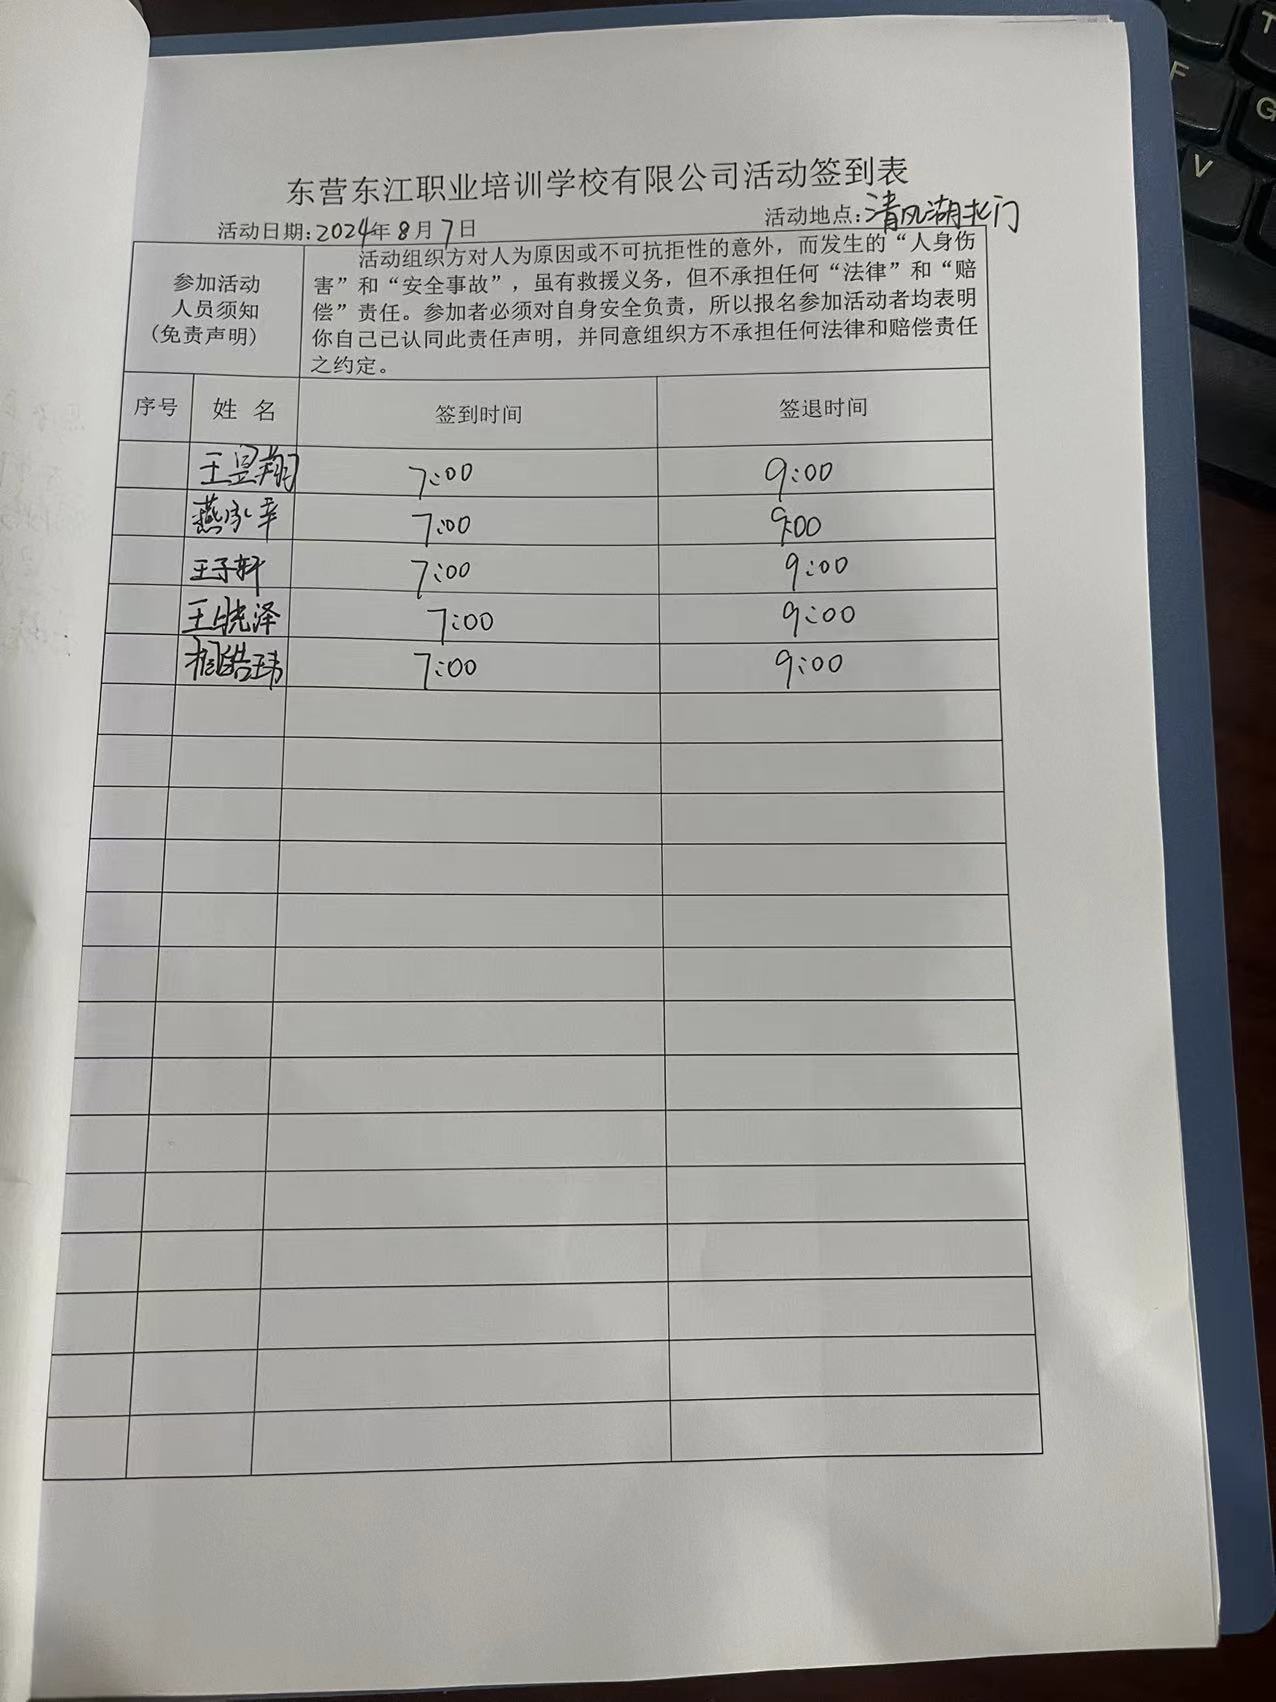 东营东江职业培训学校有限公司活动签到表
活动日期:2024年8月7日 活动地点:清风湖北门
参加活动
人员须知
(免责声明)
活动组织方对人为原因或不可抗拒性的意外，而发生的“人身伤
害”和“安全事故”，虽有救援义务，但不承担任何“法律”和“赔
偿”责任。参加者必须对自身安全负责，所以报名参加活动者均表明
你自己已认同此责任声明，并同意组织方不承担任何法律和赔偿责任
之约定。
序号 姓 名 签到时间 签退时间
王昱翔 7:00 9:00
燕弘幸 7:00 9:00
王子轩 7:00 9:00
王晓泽 7:00 9:00
相皓玮 7:00 9:00
T
F
G
V